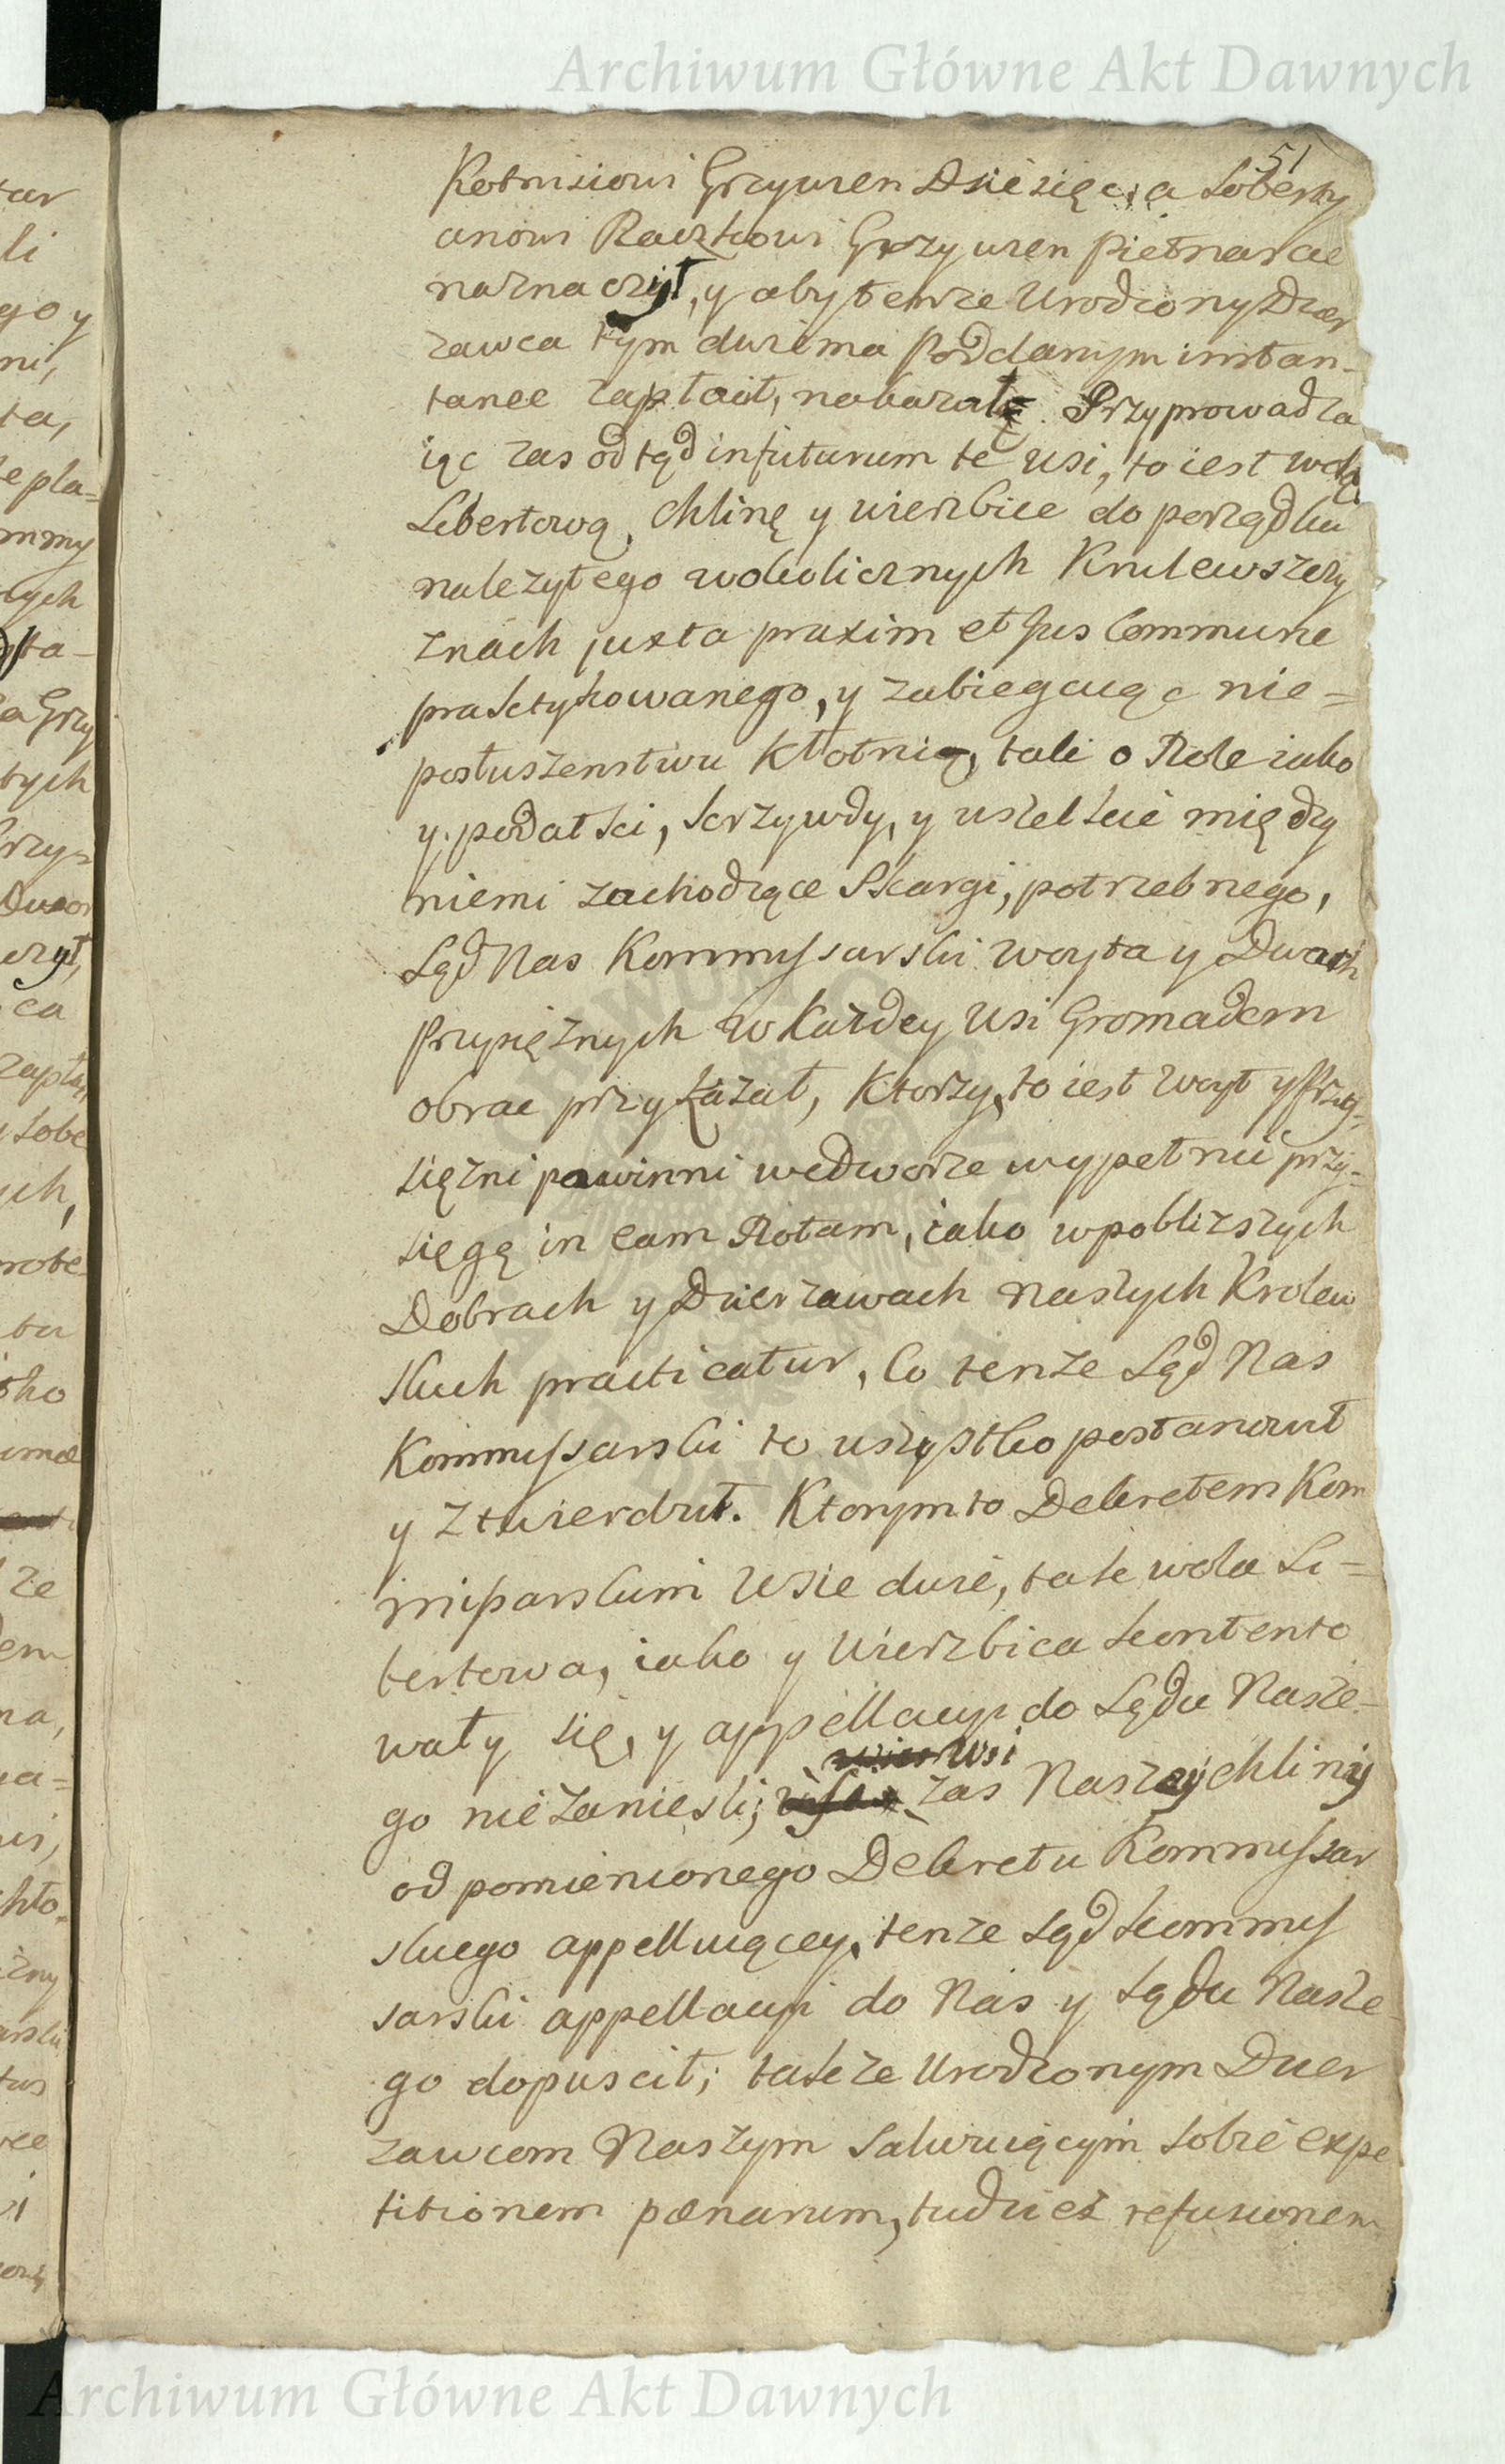 Archiwum Główne Akt Dawnych
51
Kotnisiowi Grzywien Dziesięć, a Sobesty
anowi Raczkowi Grzywien pietnascie
naznaczył, y aby tenze Urodzony Dzier
zawca tym dwiema Poddanym instan-
tanee zapłacił, nakazał. Przyprowadza
iąc zas odtąd infuturum te wsi, to iest wolą
Libertową, Chlinę y wierzbice do porządku
nalezytego wokolicznych Krulewszczy
znach juxta praxim et Jus Commune
praktykowanego, y zabiegaiąc nie=
posłuszenstwu Kłotnią, tak o Role iako
y podatki, krzywdy, y wszelkie między
niemi zachodzące Skargi, potrzebnego,
Sąd Nas Kommissarski woyta y Dwoch
Przysiężnych w Kazdey wsi Gromadom
obrac przykazał, Ktorzy, to iest woyt y Przy-
siężni powinni wedworze wypełnic przy-
sięgę in eam Rotam, iako wpoblizszych
Dobrach y Dzierzawach naszych Krolew
skich practicatur, Co tenze Sąd Nas
Kommissarski to wszystko postanowił
y ztwierdził. Ktorymto Dekretem Kom
missarskim wsie dwie, tak wola Li=
bertowa, iako y wierzbica kontento
wały się, y appellacyi do Sądu Nasze-
wsi
go nie zaniesli; zas Naszey Chliny
od pomienionego Dekretu Kommissar
skiego appelluiącey, tenze Sąd kommis
sarski appellacyi do Nas y Sądu Nasze
go dopuscił; takze Urodzonym Dzier
zawcom Naszym salwuiącym sobie expe
titionem pœnarum, tudziesz refusionem
Archiwum Główne Akt Dawnych